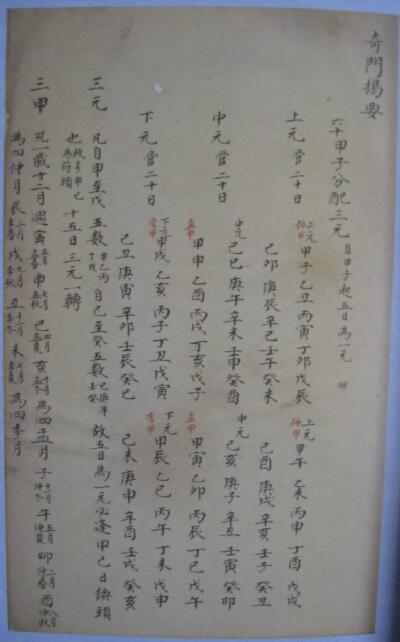 奇門揭要
六十甲子分配三元 自甲子起五日為一元
上元管二十日 上元 仲甲 甲子乙丑丙寅丁卯戊辰 上元 仲甲 甲午乙未丙申丁酉戊戌
己卯庚辰辛巳壬午癸未 己酉庚戌辛亥壬子癸丑
中元管二十日 中元 己巳庚午辛未壬申癸酉 中元 己亥庚子辛丑壬寅癸卯
孟甲 甲申乙酉丙戌丁亥戊子 孟甲 甲寅乙卯丙辰丁巳戊午
下元管二十日 下元 季甲 甲戌乙亥丙子丁丑戊寅 下元 季甲 甲辰乙巳丙午丁未戊申
己丑庚寅辛卯壬辰癸巳 己未庚申辛酉壬戌癸亥
三元 凡自甲至戊五數 甲乙丙丁戊 自己至癸五數 己庚辛壬癸 故五日為一元必逢甲己日換頭
也 為符頭 十五日三元一轉
三甲 凡一歲十二月遇寅 申 巳 亥 為四孟月子 十一月仲冬 午 五月仲夏 卯 二月仲春 酉 八月仲秋
為四仲月辰 三月季春 戌 九月季秋 丑 十二月季冬 未 六月季夏 為四季月